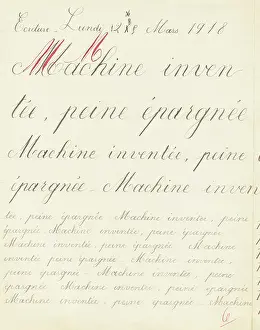 Ecriture. Lundi 18 Mars 1918
16
Machine inven-
tée, peine épargnée
Machine inventée, peine
épargnée - Machine inven
tée, peine épargnée Machine inventée, peine
épargnée Machine inventée, peine épargnée
Machine inventée, peine épargnée - Machine
inventée peine épargnée - Machine inventée,
peine épargnée - Machine inventée, peine
épargnée Machine inventée, peine épargnée
Machine inventée, peine épargnée Machine
6